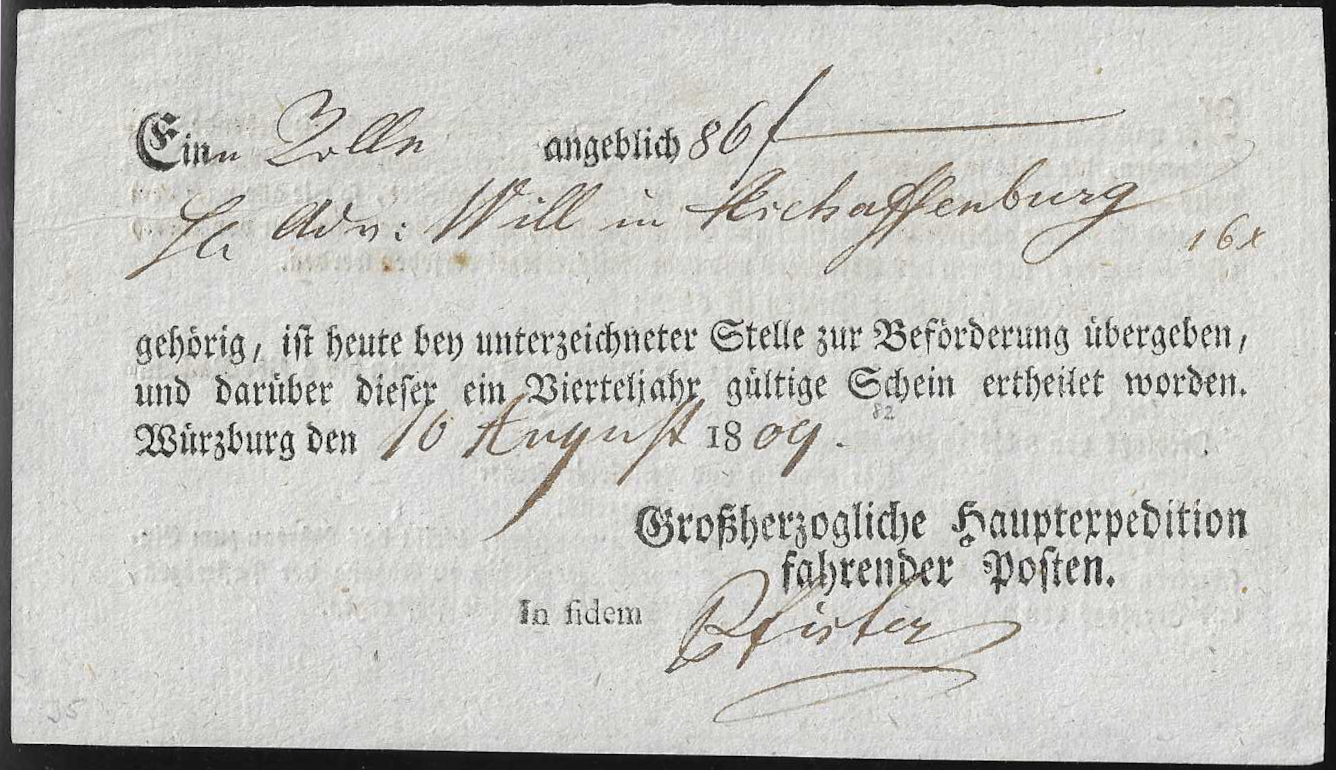 Eine Rolle angeblich 86 f
H Adv: Will in Aschaffenburg
16 x
gehörig, ist heute bey unterzeichneter Stelle zur Beförderung übergeben,
und darüber dieser ein Vierteljahr gültige Schein ertheilet worden.
Würzburg den 10 August 1809.
82
Großherzogliche Hauptexpedition
fahrender Posten.
In fidem Pfister